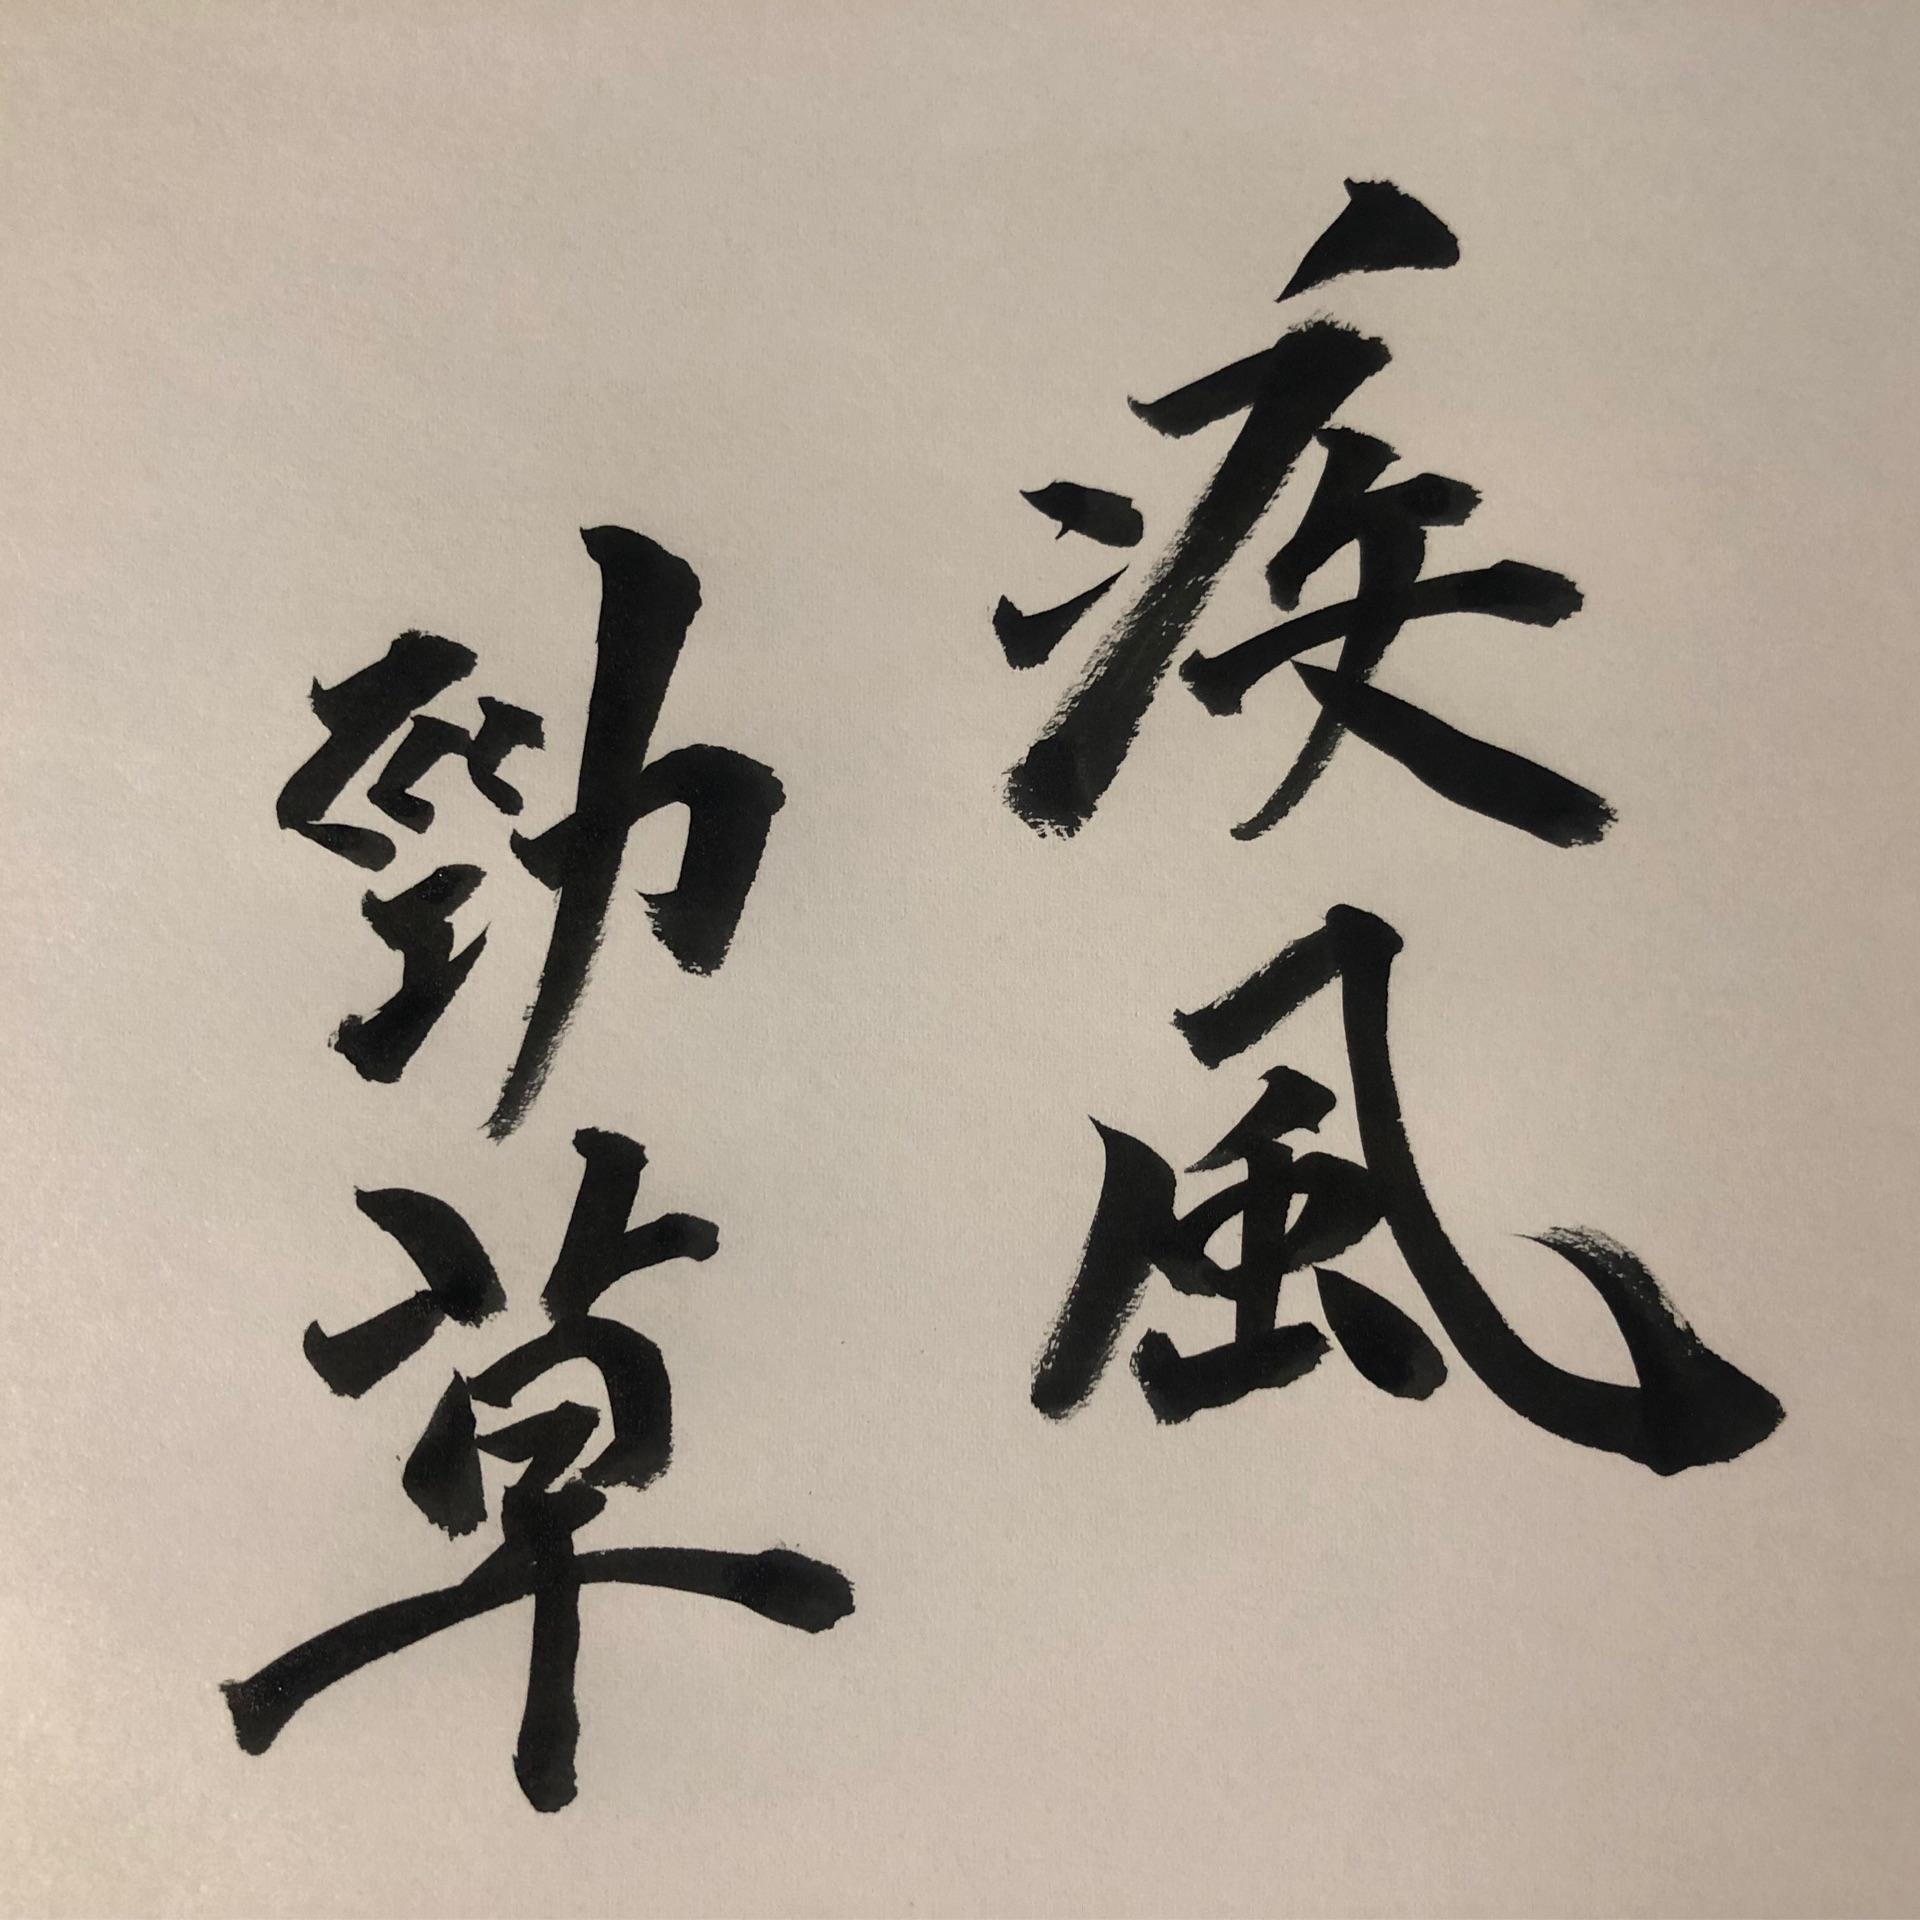 疾風
勁草